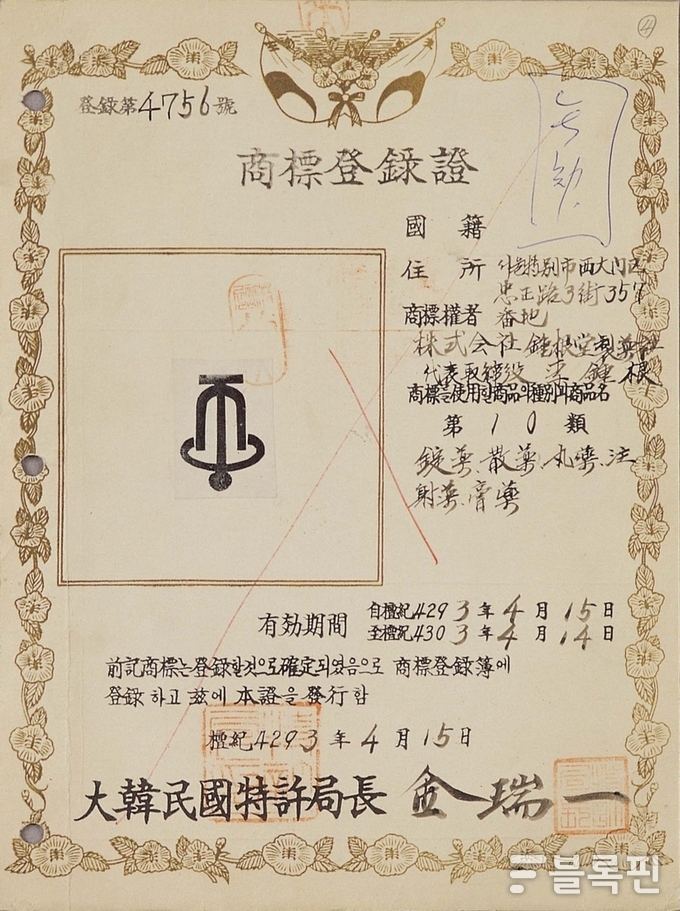 登錄第4756號
商標登錄證
國籍
住所 서울特別市西大門區
忠正路3街35의
商標權者 番地
株式会社 鍾根堂製薬社
代表取締役 李鍾根
商標를使用할商品의種別과商品名
第10類
錠薬、散薬、丸薬、注
射薬、膏薬
有効期間 自檀紀4293年4月15日
至檀紀4303年4月14日
前記商標는登錄할것으로確定되었음으로 商標登錄簿에
登錄하고 玆에 本證을 發行함
檀紀4293年4月15日
大韓民國特許局長 金瑞一
블록핀